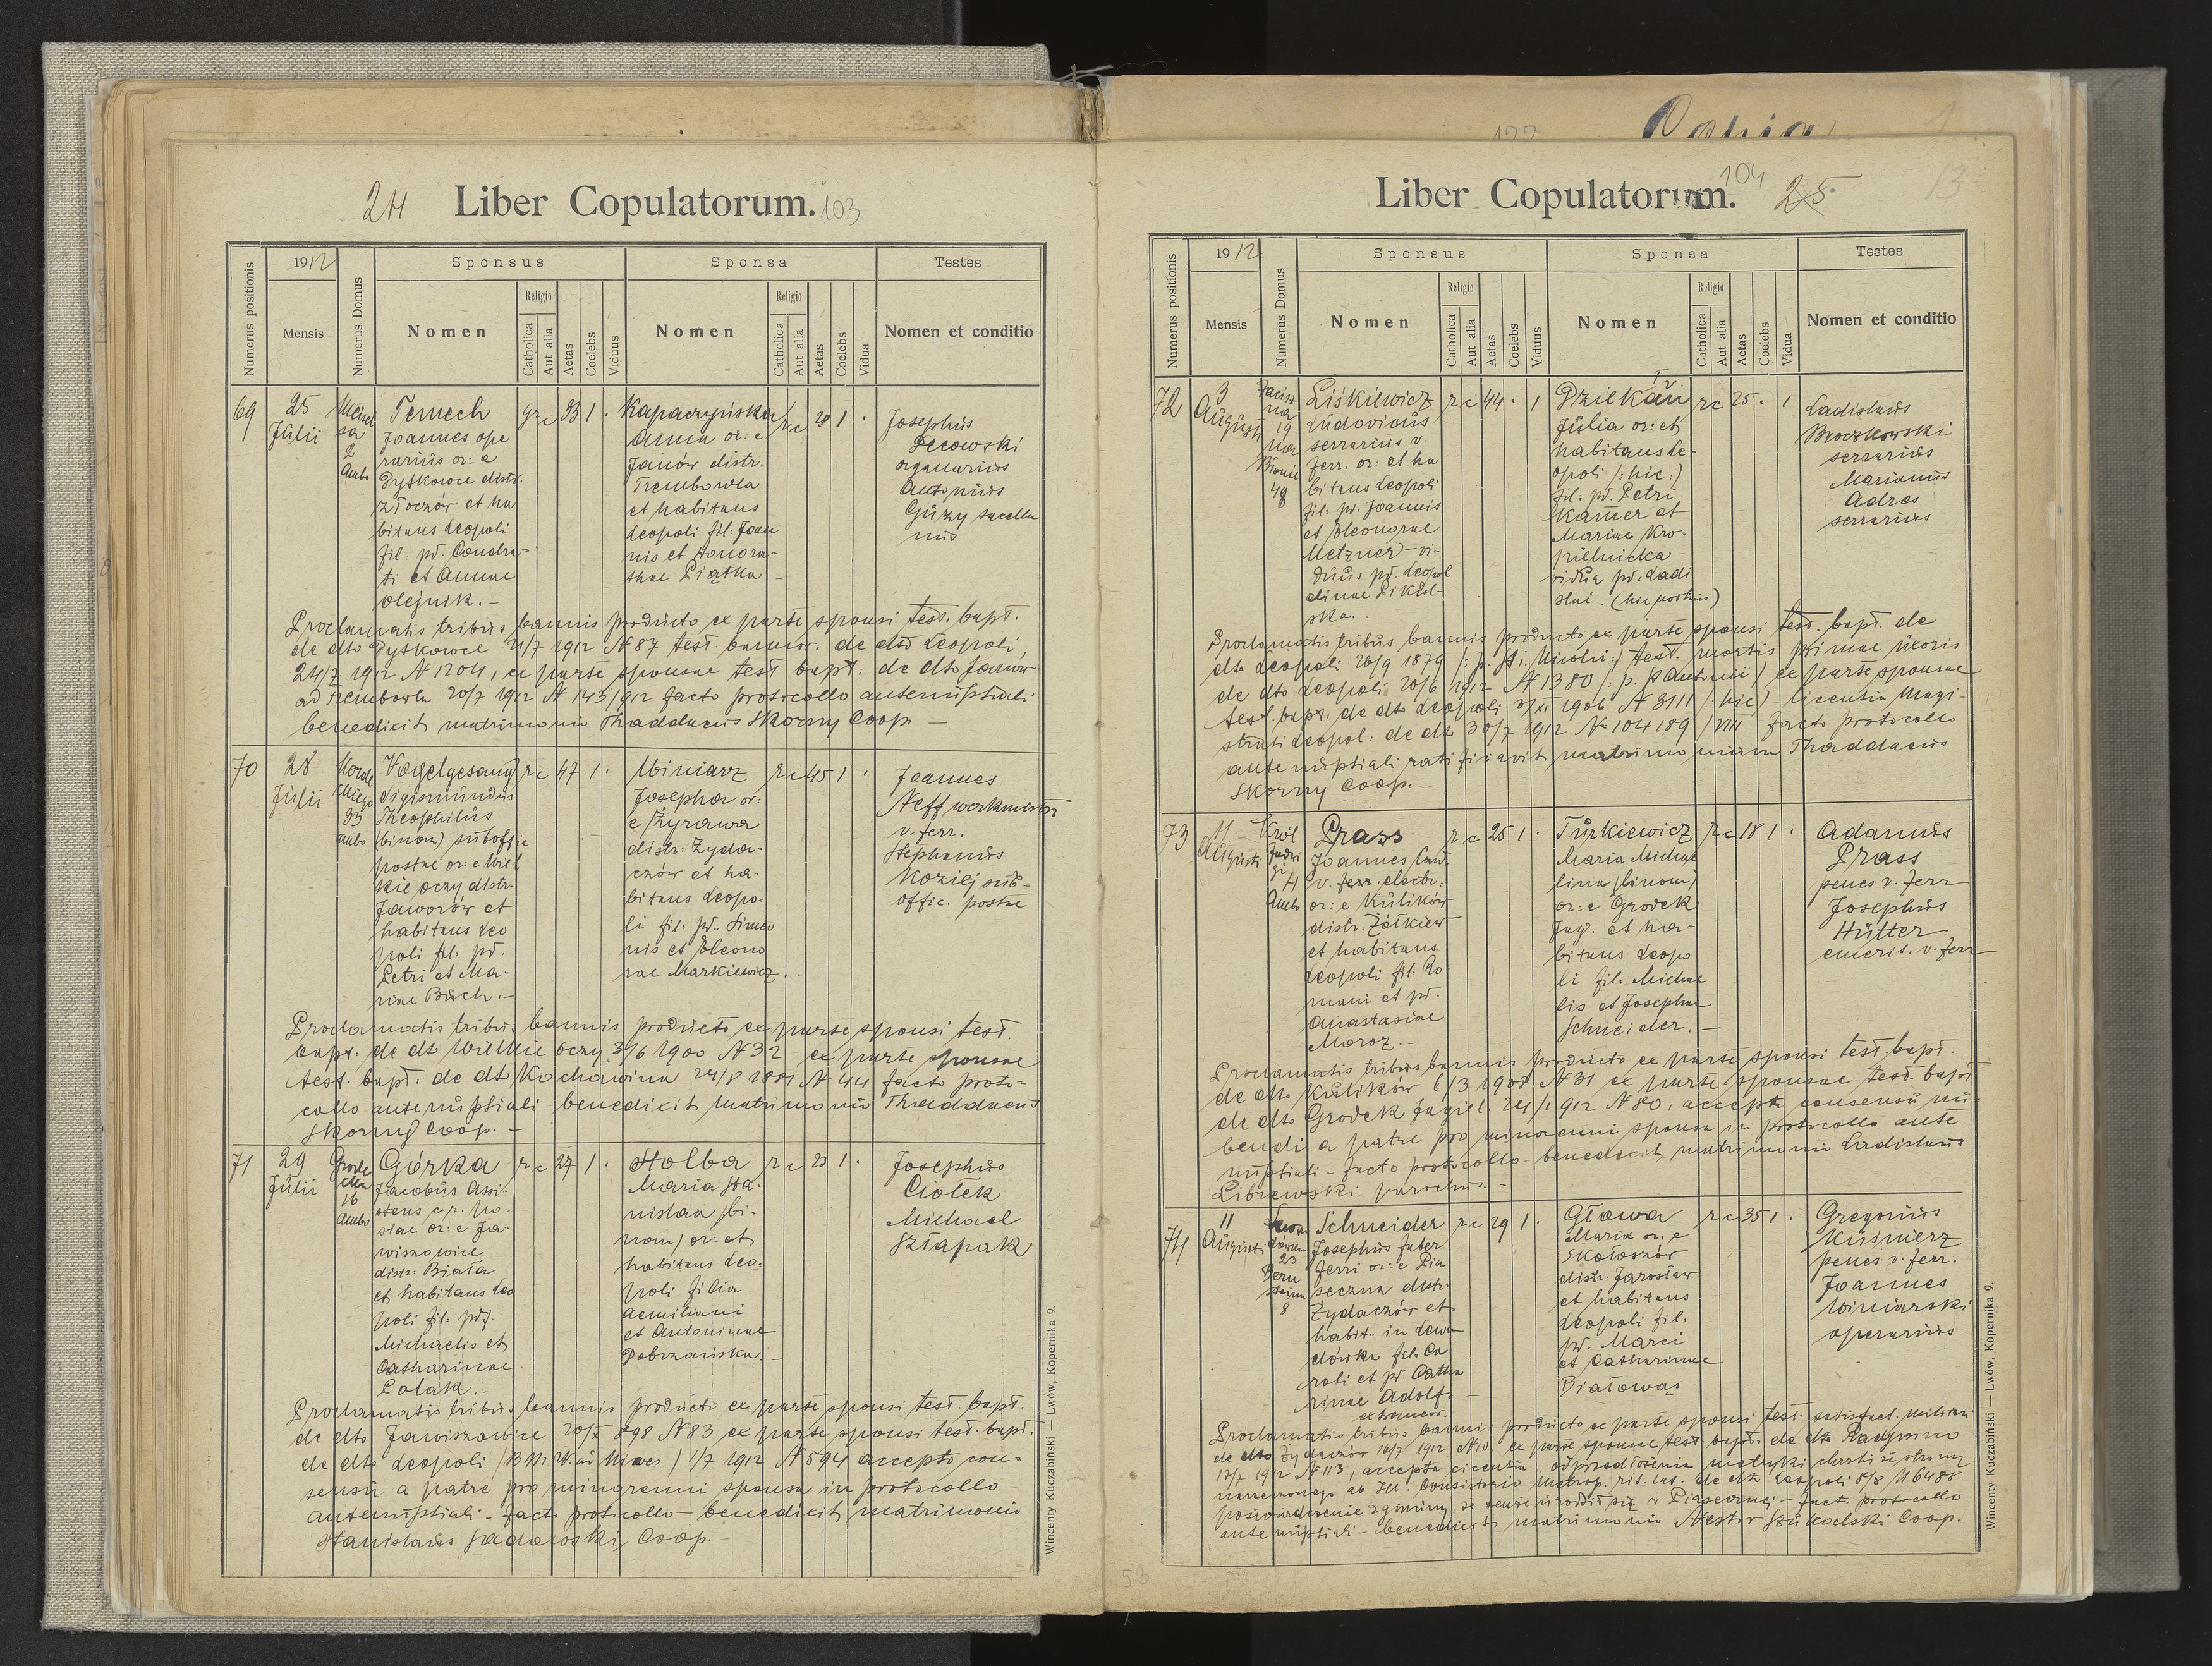 24 Liber Copulatorum. 103
Numerus positionis
1912
Mensis
Numerus Domus
Sponsus
Nomen
Religio
Catholica
Aut alia
Aetas
Coelebs
Viduus
Sponsa
Nomen
Religio
Catholica
Aut alia
Aetas
Coelebs
Vidua
Testes
Nomen et conditio
69
25
Julii
2
Ambo
Temech
Joannes ope
rarius or: e
Dytkowce distr.
Złoczów et ha
bitans Leopoli
fil: pd. Condra-
ti et Annae
Olejnik.-
gr c 33 1 .
Kapaczyńska
Anna or: e
Janów distr.
Trembowla
et habitans
Leopoli fil: Joan
nis et Honora-
thae Piątka -
rc 28 1 .
Josephus
Lecowski
organarius
Antonius
Guzy sacella
nus
Proclamatis tribus bannis producto ex parte sponsi test. bapt.
de dto Dytkowce 21/7 1912 N 87 test. bannor. de dto Leopoli,
24/7 1912 N 1204, ex parte sponsae test bapt: de dto Janów
ad Trembowla 20/7 1912 N 143/912 facto protocollo antenuptiali:
benedixit matrimonio Thaddaeus Skorny Coop. -
70
28
Julii
33
Ambo
Vogelgesang
Sigismundus
Theophilus
(binom) suboffic
postae or: e Wiel
kie oczy distr.
Jaworów et
habitans Leo
poli fil. pd.
Petri et Ma-
riae Büch.-
rc 47 1 .
Winiarz
Josepha or:
e Żyrawa
distr: Żyda-
czów et ha-
bitans Leopo-
li fil: pd. Simeo
nis et Eleono
rae Markiewicz. -
rc 45 1 .
Joannes
Neff werkmeister
v. ferr.
Stephanus
Koziej sub-
offic. postae
Proclamatis tribus bannis producto ex parte sponsi test.
bapt. de dto Wielkie oczy 3/6 1900 N 32 ex parte sponsae
test. bapt. de dto Kochawina 24/8 1881 N 44 facto proto-
collo antenuptiali benedixit matrimonio Thaddaeus
Skorny Coop. -
71
29
Julii
Grode
cka
16
Ambo
Górka
Jacobus Assi-
stens c.r. po-
stae or: e Ja-
wiszowice
distr: Biała
et habitans Leo
poli fil: pd.
Michaelis et
Catharinae
Polak.-
rc 27 1 .
Holba
Maria Sta-
nislaa (bi-
nom) or: et
habitans Leo-
poli filia
Aemiliani
et Antoninae
Dobrzańska. -
rc 23 1 .
Josephus
Ciołek
Michael
Szłapak
Proclamatis tribus bannis producto ex parte sponsi test. bapt.
de dto Jawiszowice 20/7 898 N 83 ex parte sponsi test. bapt.
de dto Leopoli (B.M.V. ad Nives) 1/7 1912 N 594 accepto con-
sensu a patre pro minorenni sponsa in protocollo
antenuptiali - facto protocollo - benedixit matrimonio
Stanislaus Sadowski, Coop. -
Wincenty Kuczabiński — Lwów, Kopernika 9.
Liber Copulatorum. 104 25
13
Numerus positionis
1912
Mensis
Numerus Domus
Sponsus
Nomen
Religio
Catholica
Aut alia
Aetas
Coelebs
Viduus
Sponsa
Nomen
Religio
Catholica
Aut alia
Aetas
Coelebs
Vidua
Testes
Nomen et conditio
72
3
Augusti
19
48
Liśkiewicz
Ludovicus
serrarius v.
ferr. or: et ha
bitans Leopoli
fil: pd. Joannis
et Eleonorae
Metzner - vi-
duus pd. Leopol
dinae
rc 44 . 1
Dziekan
Julia or: et
habitans Le-
opoli (: hic :)
fil: pd. Petri
Kamer et
Mariae Kro-
pielnicka -
vidua pd. Ladi
slai.
rc 25 . 1
Ladislaus
Broczkowski
serrarius
Marianus
Adres
serrarius
Proclamatis tribus bannis producto ex parte sponsi test. bapt. de
dto Leopoli 20/9 1879 (: p. St. Nicolai :) test. mortis primae uxoris
de dto Leopoli 20/6 1912 N 1380 (: p. St Antonii) ex parte sponsae
test bapt. de dto Leopoli 3/XI 1906 N 3111 (: hic) licentia Magi-
strati Leopol: de dto 30/7 1912 N 104189/VII facto protocollo
ante nuptiali ratificavit matrimonium Thaddaeus
Skorny Coop. -
73
11
Augusti
Król
Jadwi
gi
4
Ambo
Prass
Joannes
v. ferr. electr:
or: e Kulików
distr. Żółkiew
et habitans
Leopoli fil. Ro-
mani et pd.
Anastasiae
Moroz. -
rc 25 1 .
Turkiewicz
Maria Michae
lina (binom)
or: e Gródek
Jag. et ha-
bitans Leopo
li fil. Michae
lis et Josephae
Schneider. -
rc 18 1 .
Adamus
Prass
penes v. ferr
Josephus
Hütter
emerit. v. ferr
Proclamatis tribus bannis producto ex parte sponsi test. bapt.
de dto Kulików 6/3 1908 N 31 ex parte sponsae test. bapt
de dto Gródek Jagiel. 24/1 912 N 80, accepto consensu nu-
bendi a patre pro minorenni sponsa in protocollo ante
nuptiali - facto protocollo - benedixit matrimonio Ladislaus
Librewski parochus. -
74
11
Augusti
23
8
Schneider
Josephus faber
ferri or: e Pia
seczna distr.
Żydaczów et
habit. in Lewa
dówka fil. Ca
roli et pd. Catha
rinae Adolf. -
rc 29 1 .
Głowa
Maria or: e
Skołoszów
distr: Jarosław
et habitans
Leopoli fil.
pd. Marci
et Catharinae
Białowąs
rc 35 1 .
Gregorius
Kuśnierz
penes v. ferr.
Joannes
Winiarski
operarius
Proclamatis tribus bannis producto ex parte sponsi test. satisfact. militari
de dto Żydaczów 16/7 1912 N 10 ex parte sponsae test. bapt. de dto Radymno
17/7 1912 N 113, accepta licentia od przedłożenia metryki chrztu ze strony
narzeczonego ab Ill. Consistorio Metrop. rit. lat. de dto Leopoli 8/8 N 6488
poświadczenie z gminy, że tenże urodził się w Piasecznej - fact. protocollo
ante nuptiali - benedixit matrimonio Nestor Szukalski Coop.
53
Wincenty Kuczabiński — Lwów, Kopernika 9.